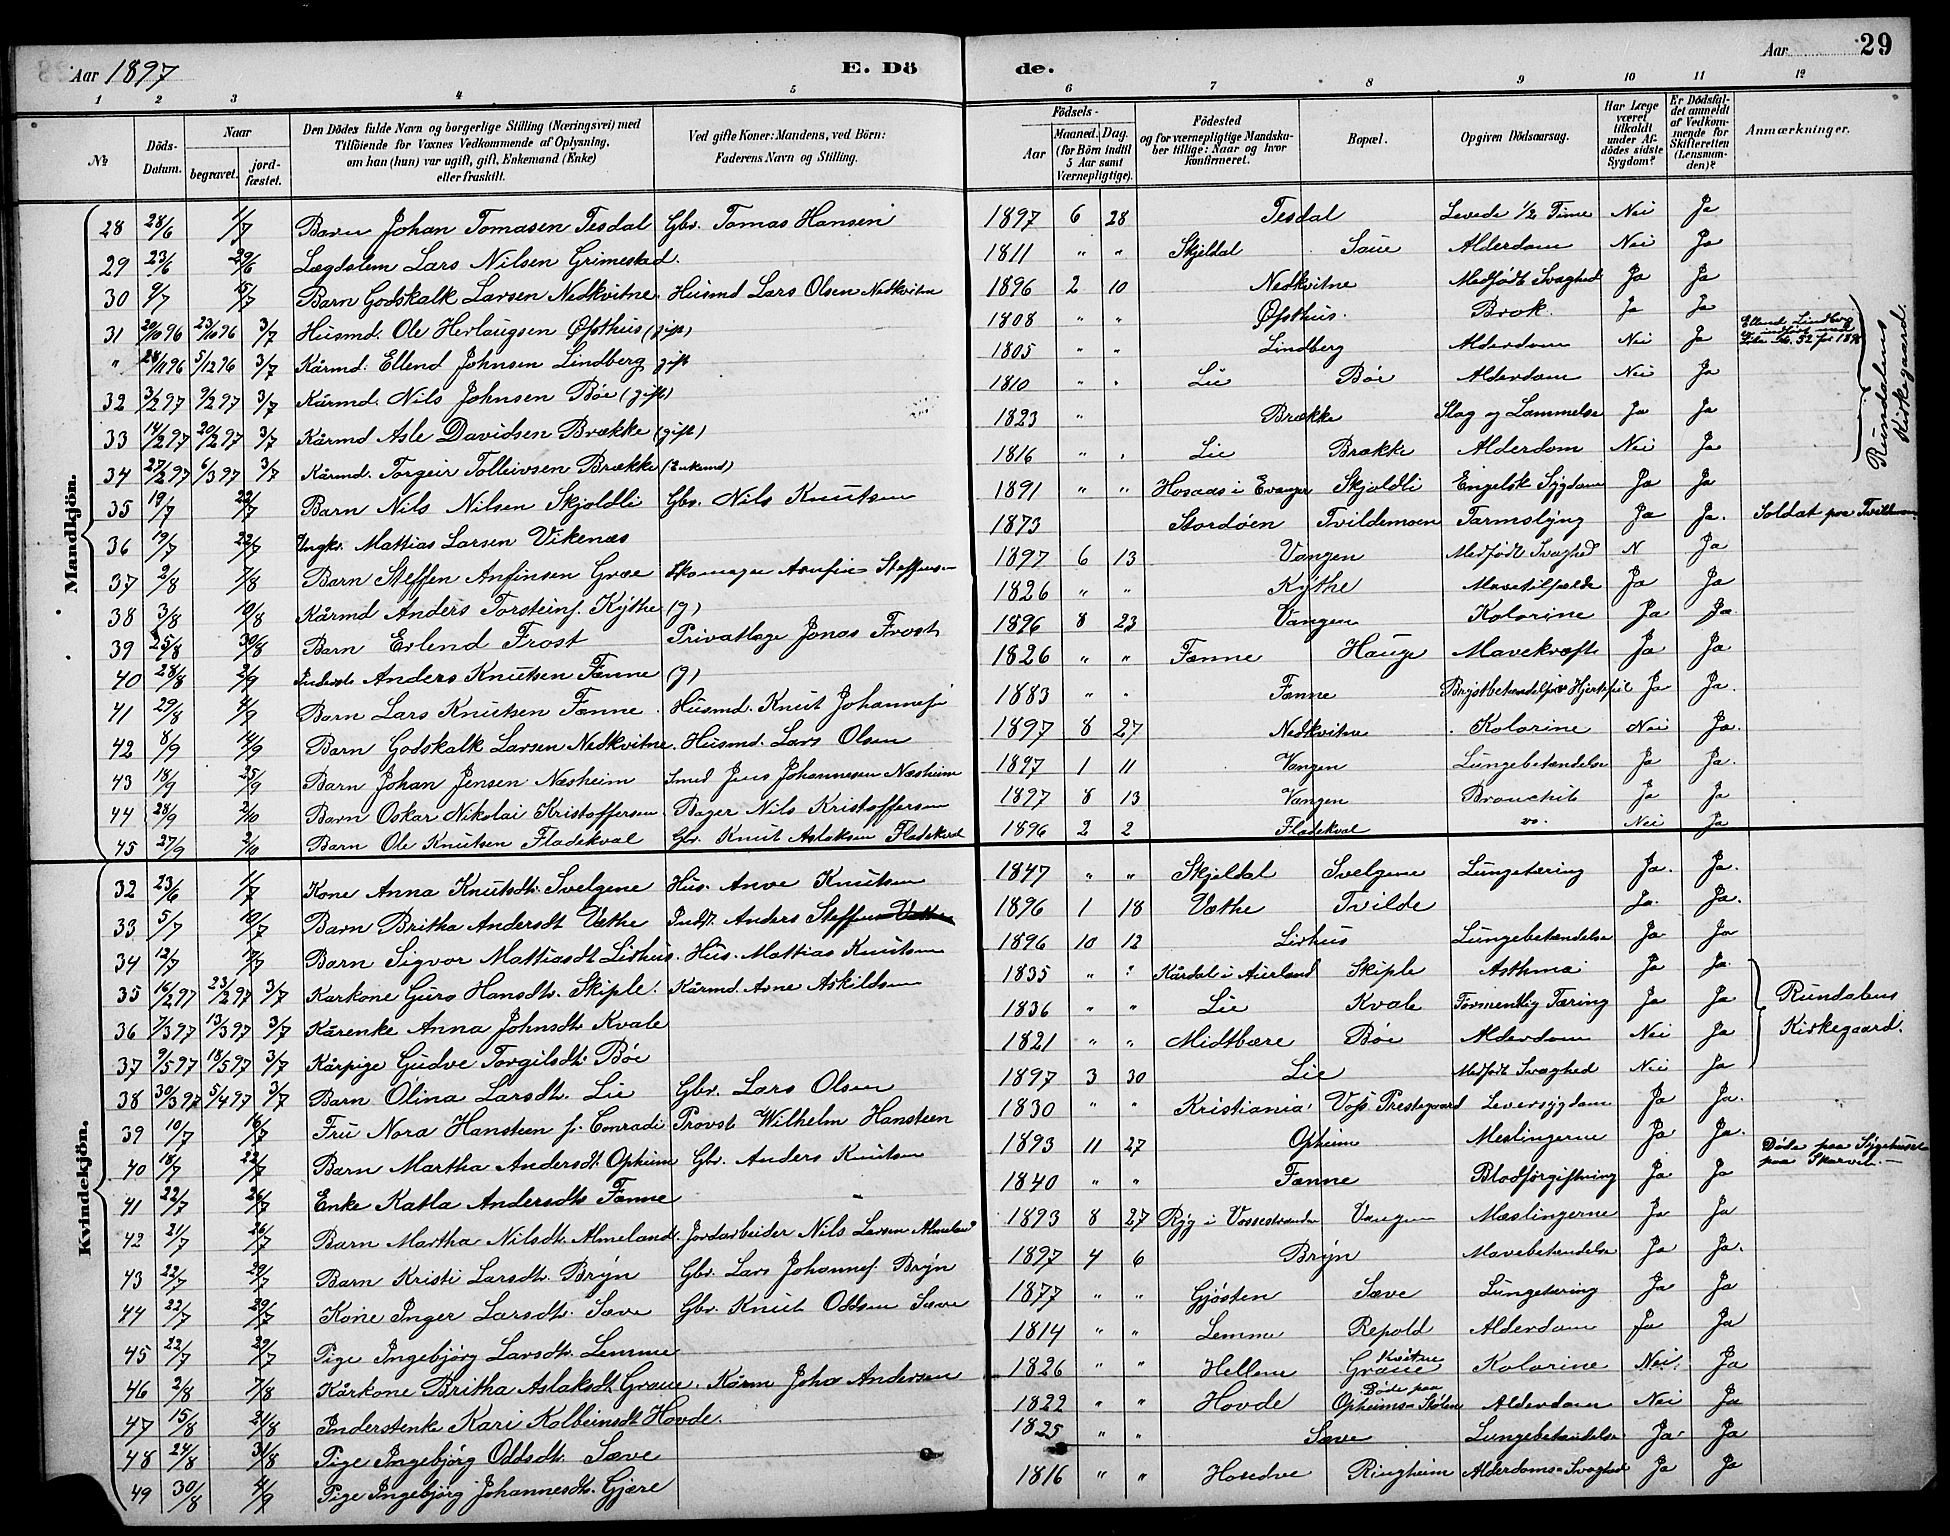 Aar 1897 E. Dö de. Aar 29
1 2 3 4 5 6 7 8 9 10 11 12
№ Döds-Datum. Naar begravet. jordfæstet. Den Dödes fulde Navn og borgerlige Stilling (Næringsvei) med Tilföiende for Voxnes Vedkommende af Oplysning, om han (hun) var ugift, gift, Enkemand (Enke) eller fraskilt. Ved gifte Koner: Mandens, ved Börn: Faderens Navn og Stilling. Födsels- Aar Maaned. Dag. (for Börn indtil 5 Aar samt Værnepligtige). Födested og for værnepligtige Mandskaber tillige: Naar og hvor konfirmeret. Bopæl. Opgiven Dödsaarsag. Har Læge været tilkaldt under Afdödes sidste Sygdom? Er Dödsfaldet anmeldt af Vedkommende for Skifteretten (Lensmanden)? Anmærkninger.
Mandkjön.
28 28/6 1/7 Barn Johan Tomasen Tesdal Gbr. Tomas Hansen 1897 6 28 Tesdal Levede 1/2 Time Nei Ja
29 23/6 29/6 Lægdslem Lars Nilsen Grimestad. 1811 " " Skjeldal Saue Alderdom Nei Ja
30 9/7 15/7 Barn Godskalk Larsen Nedkvitne Husmd Lars Olsen Nedkvitne 1896 2 10 Nedkvitne Medfödt Svaghed Ja Ja
31 20/10 96 23/10 96 3/7 Husmd. Ole Herlaugsen Øfsthus (gift) 1808 " " Øfsthus. Brok. Ja Ja
" 28/11 96 5/12 96 3/7 Kårmd. Ellend Johnsen Lindberg gift 1805 " " Lindberg Alderdom Nei Ja Ellend Lindberg
32 3/2 97 9/2 97 3/7 Kårmd. Nils Johnsen Böe (gift) 1810 " " Lie Böe Alderdom Nei Ja
33 14/2 97 20/2 97 3/7 Kårmd Asle Davidsen Brække (gift) 1823 " Brække Slag og Lammelse Ja Ja
34 27/2 97 6/3 97 3/7 Kårmd. Torgeir Tolleivsen Brække (Enkemd) 1816 " " Lie Brække Alderdom Nei Ja
Rundalens Kirkegaard.
35 19/7 22/7 Barn Nils Nilsen Skjoldli Gbr. Nils Knutsen 1891 " " Hosaas i Evanger Skjoldli Engelsk Sygdom Ja Ja
36 19/7 22/7 Ungkr. Mattias Larsen Vikenæs 1873 Stordöen Tvildemoen Tarmslyng Ja Ja. Soldat paa Tvildemoen
37 2/8 7/8 Barn Steffen Anfinsen Græe Skomager Anfin Steffensen 1897 6 13 Vangen Medfödt Svaghed N Ja
38 3/8 10/8 Kårmd Anders Torsteins. Kÿthe (g) 1826 " " Kÿthe Mavetilfælde Ja Ja
39 25/8 30/8 Barn Erlend Frost Privatlæge Jonas Frost 1896 8 23 Vangen Kolorine Ja Ja
40 28/8 2/9 Inderst Anders Knutsen Fænne (g) 1826 " " Fænne Hauge Mavekræft Ja Ja
41 29/8 4/9 Barn Lars Knutsen Fænne Husmd. Knut Johannes. 1883 " " Fænne Brystbetændelse Hjertefeil Ja Ja.
42 8/9 14/9 Barn Godskalk Larsen Nedkvitne Husmd. Lars Olsen 1897 8 27 Nedkvitne Kolorine Nei Ja.
43 18/9 25/9 Barn Johan Jensen Næsheim Smed Jens Johannesen Næsheim 1897 1 11 Vangen Lungebetændelse Ja Ja.
44 28/9 2/10 Barn Oskar Nikolai Kristoffersen Bager Nils Kristoffersen 1897 8 13 Vangen Bronchit Ja Ja
45 27/9 2/10 Barn Ole Knutsen Fladekval Gbr. Knut Aslaksen Fladekval 1896 2 2 Fladekval Nei Ja
Kvindekjön.
32 23/6 1/7 Kone Anna Knutsdtr. Svelgene Hus. Anve Knutsen 1847 " " Skjeldal Svelgene Lungetæring Ja. Ja.
33 5/7 10/7 Barn Britha Andersdt Væthe Indst. Anders Steffens 1896 1 18 Væthe Tvilde Ja. Ja.
34 12/7 17/7 Barn Sigvor Mattiasdt Lirhus. Hus. Mattias Knutsen 1896 10 12 Lirhus Lungebetændelse Ja Ja
35 16/2 97 23/2 97 3/7 Karkone Guro Hansdtr. Skiple. Kårmd. Arne Askildsen 1835 " " Kårdal i Aurland Skiple Asthma Ja Ja
36 7/3 97 13/3 97 3/7 Kårenke Anna Johnsdtr. Kvale 1836 " " Lie Kvale Formentlig Tæring Ja Ja
37 9/5 97 18/5 97 3/7 Kårpige Gudve Torgilsdtr. Böe 1821 " " Midtbære Böe Alderdom Nei Ja
38 30/3 97 5/4 97 3/7 Barn Olina Larsdtr. Lie Gbr. Lars Olsen 1897 3 30 Lie Medfödt Svaghed Nei Ja
Rundalens Kirkegaard.
39 10/7 16/7 Fru Nora Hansteen f. Conradi Provst Wilhelm Hansteen 1830 " " Kristiania Voss Prestegaard Leversygdom Ja Ja.
40 18/7 22/7 Barn Martha Andersdt. Opheim Gbr. Anders Knutsen 1893 11 27 Opheim Meslingerne Ja Ja. Döde paa Sygehuset paa
41 22/7 26/7 Enke Katla Andersdtr. Fænne 1840 " " Fænne Blodforgiftning Ja Ja
42 21/7 26/7 Barn Martha Nilsdtr. Almeland. Jordarbeider Nils Larsen Almeland 1893 8 27 Ryg i Vossestranden Vangen Mæslingerne Ja Ja
43 22/7 29/7 Barn Kristi Larsdtr. Brÿn Gbr. Lars Johannes. Brÿn 1897 4 6 Brÿn Mavebetændelse Ja Ja.
44 22/7 29/7 Kone Inger Larsdtr. Sæve Gbr. Knut Oddsen Sæve 1877 " " Gjösten Sæve Lungetæring Ja Ja
45 22/7 29/7 Pige Ingebjörg Larsdtr. Lemme 1814 " " Lemme Repold Alderdom Ja Ja
46 2/8 7/8 Kårkone Britha Aslaksdt. Graue. Kårm Joha Andersen 1826 " " Hellene Graue Kvitne Kolorine Nei. Ja
47 15/8 21/8 Inderstenke Kari Kolbeinsdt. Hovde. 1822 " " Hovde Döde paa Opheims-Stölen Alderdom Nei Ja
48 24/8 31/8 Pige Ingebjörg Oddsdt. Sæve 1825 " " Sæve Lungebetændelse Ja Ja
49 30/8 4/9 Pige Ingebjörg Johannesdtr. Gjære 1816 " " Hosedve Ringheim Alderdoms-Svaghed Ja Ja